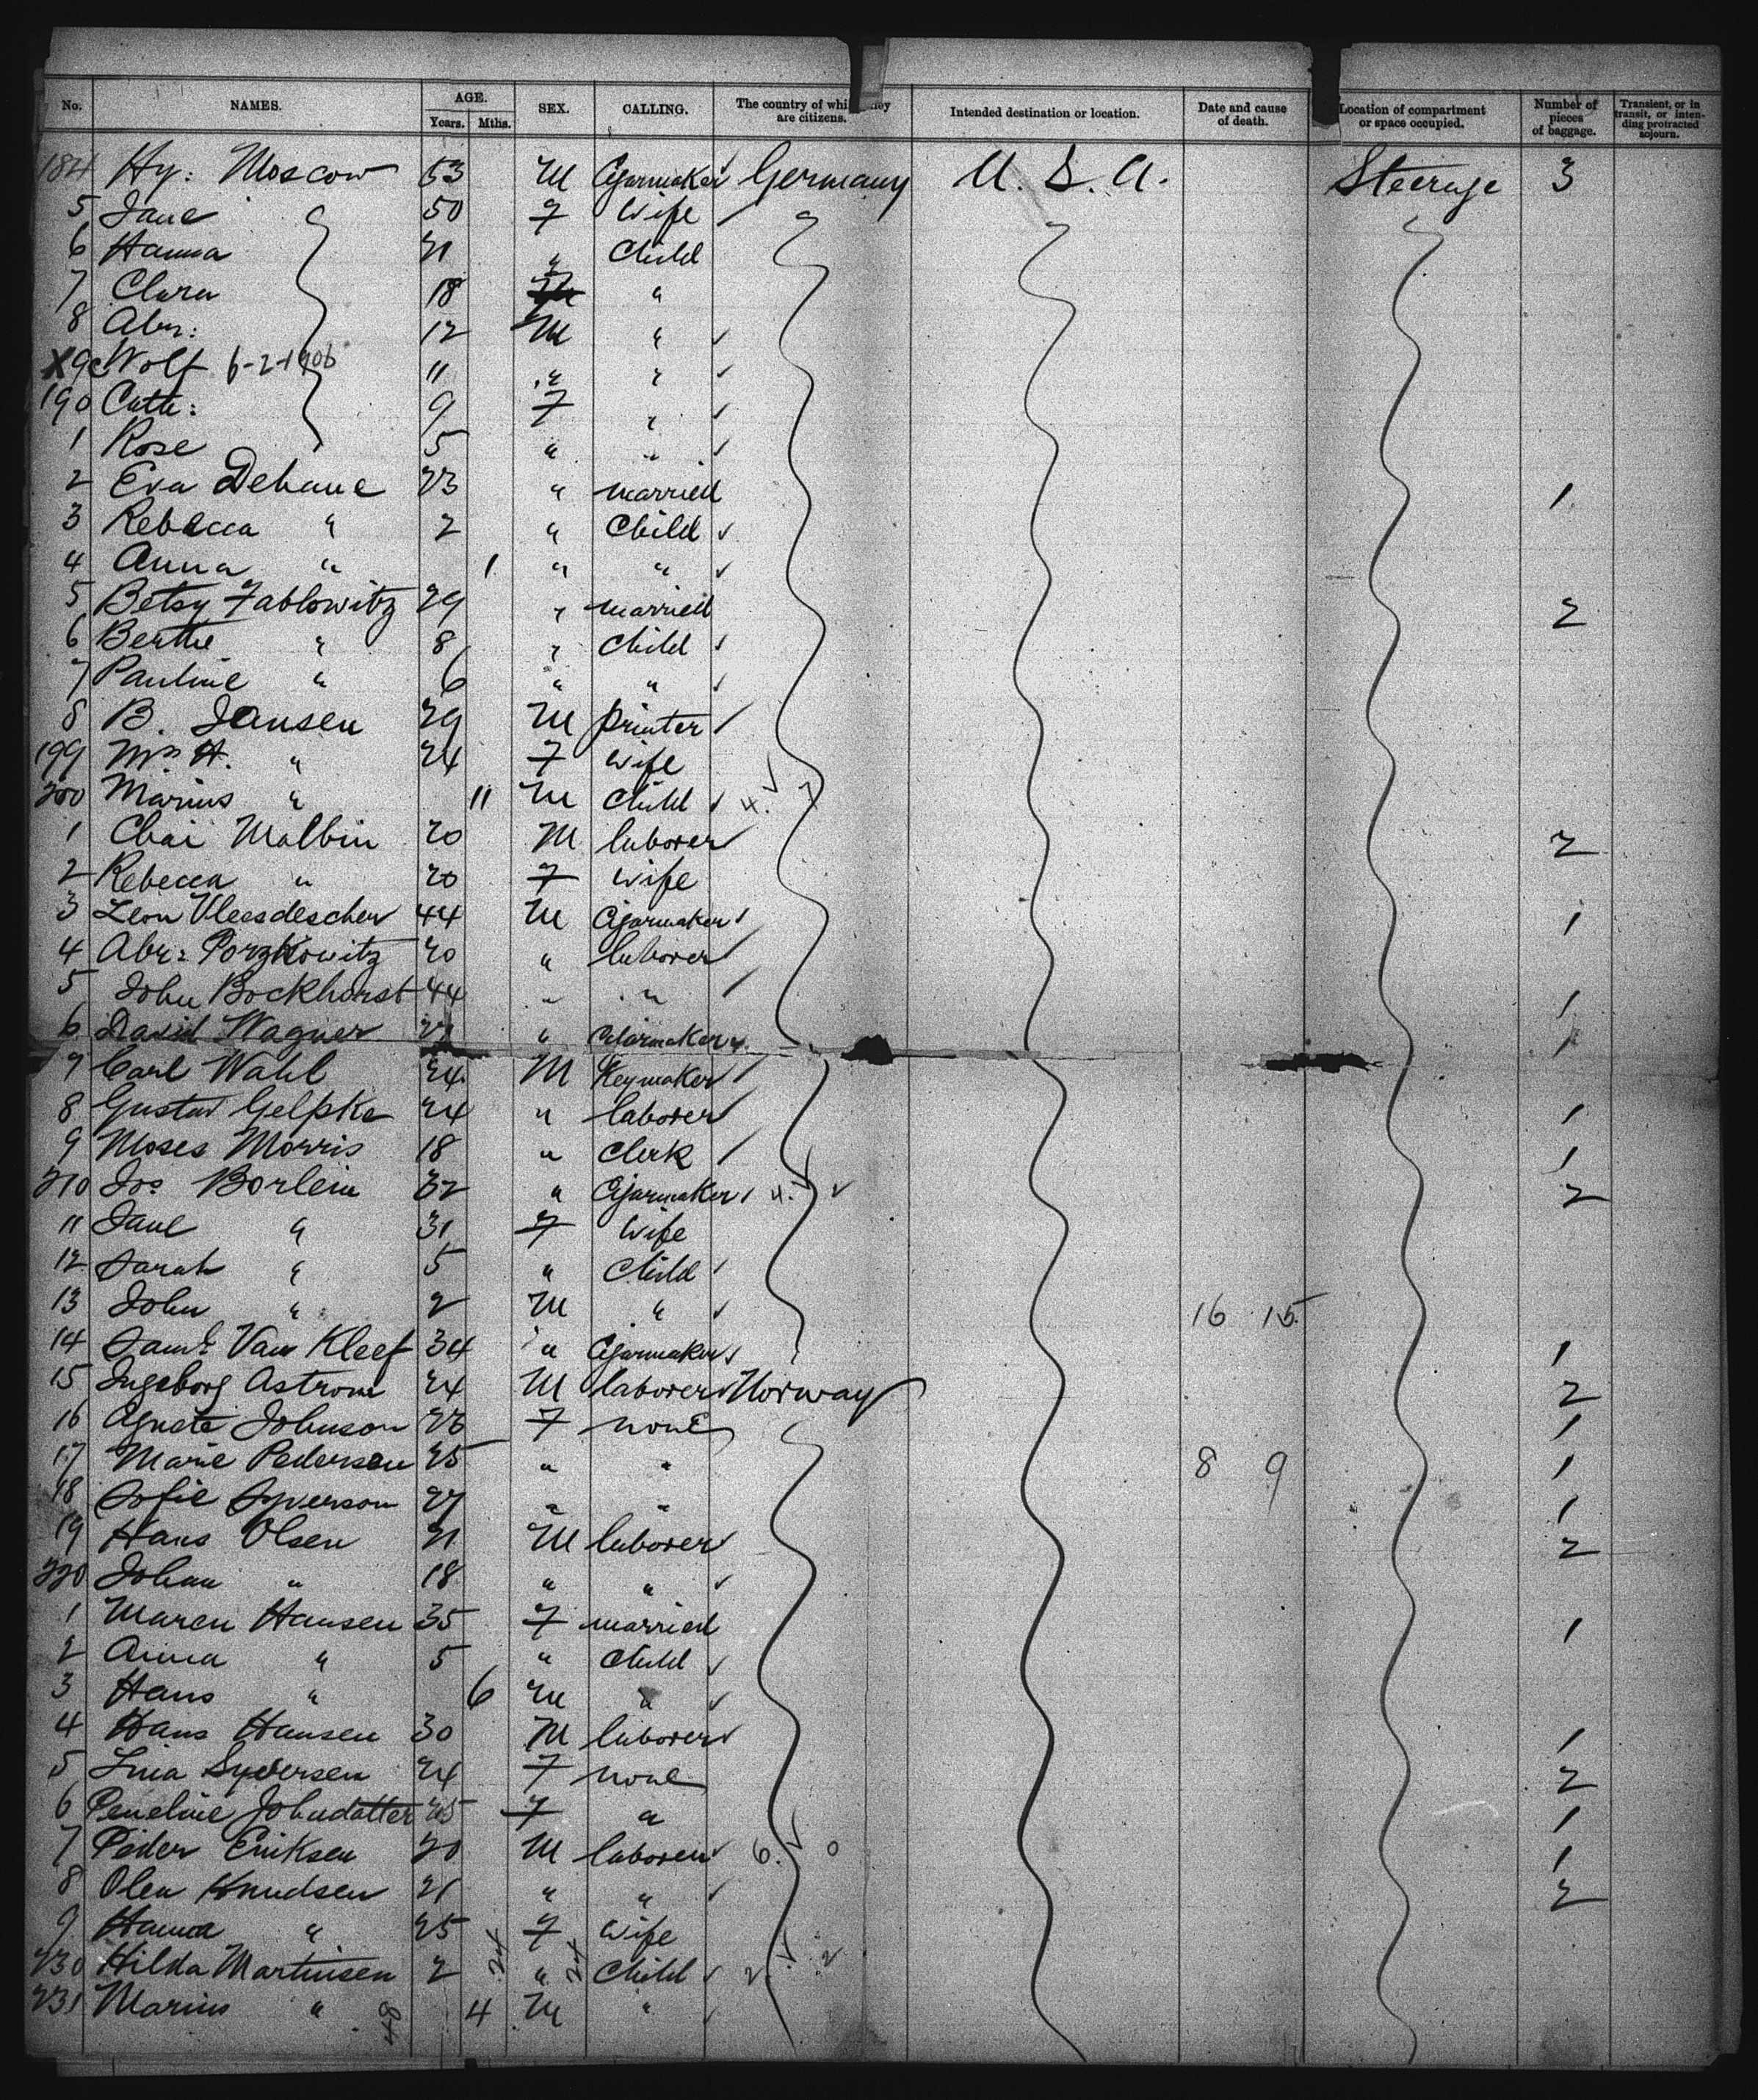 No. NAMES. AGE. Years. Mths. SEX. CALLING. The country of which they are citizens. Intended destination or location. Date and cause of death. Location of compartment or space occupied. Number of pieces of baggage. Transient, or in transit, or intending protracted sojourn.
184 Hy: Moscow 53 M Cigarmaker Germany U.S.A. Steerage 3
5 Jane 50 F Wife
6 Hanna 21 " Child
7 Clara 18 "
8 Abr: 12 M "
X 9 Wolf 6-2-1906 11 " "
190 Cath: 9 F "
1 Rose 5 " "
2 Eva Dehane 23 " married 1
3 Rebecca " 2 " Child
4 Anna " 1 " "
5 Betsy Fablowitz 29 " married 2
6 Berthe " 8 " Child
7 Pauline " 6 " "
8 B. Jansen 29 M printer
199 Mrs H. " 24 F Wife
200 Marius " 11 M Child 4.
1 Chai Malbin 20 M laborer 2
2 Rebecca " 20 F Wife
3 Leon Vleesdescher 44 M Cigarmaker 1
4 Abr: Porzkowitz 20 " laborer
5 John Bockhorst 44 " " 1
6 David Wagner " Cigarmaker 1
7 Carl Wahl 24 M Keymaker
8 Gustav Gelpke 24 " laborer 1
9 Moses Morris 18 " Clerk 1
210 Jos Borlein 32 " Cigarmaker 4. 2
11 Jane " 31 F Wife
12 Sarah " 5 " Child
13 John " 2 M " 16 15.
14 Saml Van Kleef 34 " Cigarmaker 1
15 Ingeborg Astrom 24 M laborer Norway 2
16 Agnete Johnson F none 1
17 Marie Pedersen 25 " " 8 9 1
18 Sofie Syverson 27 " " 1
19 Hans Olsen 21 M laborer 2
220 Johan " 18 " "
1 Maren Hansen 35 F married 1
2 Anna " 5 " Child
3 Hans " 6 M "
4 Hans Hansen 30 M laborer 1
5 Lina Syversen 24 F none 2
6 Peneline Johndatter 25 F " 1
7 Peder Eriksen 20 M laborer 6. 0 1
8 Olen Knudsen 21 " " 2
9 Hanna " 25 F Wife
230 Hilda Martinsen 2 24 " 24 Child 2 2
231 Marius " 48 4 M "